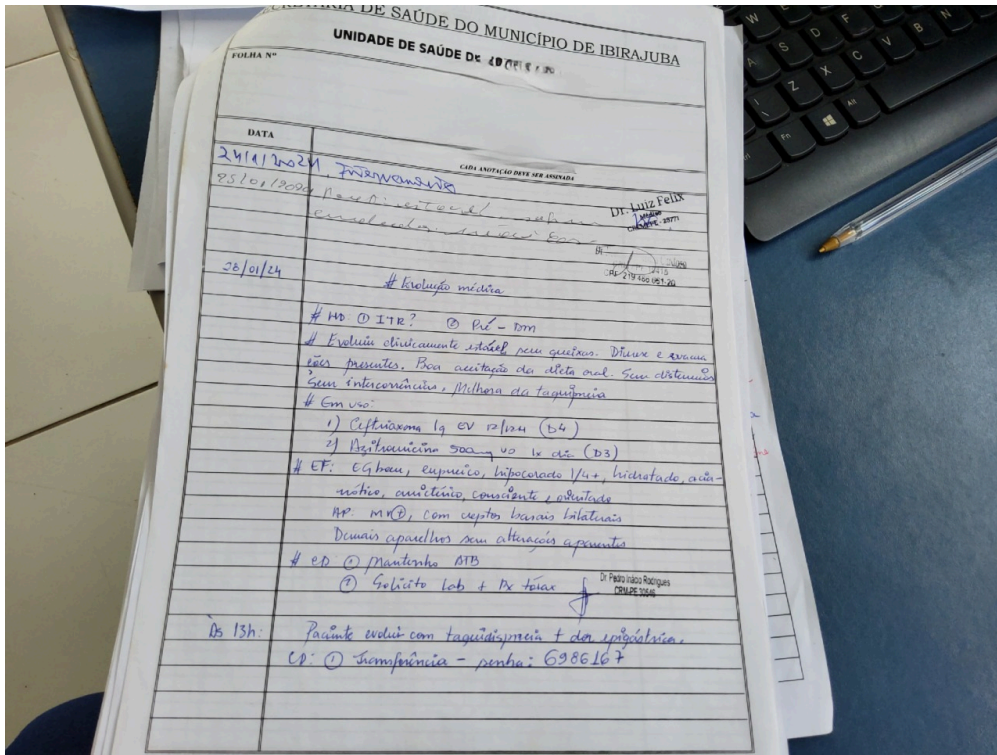 SECRETARIA DE SAÚDE DO MUNICÍPIO DE IBIRAJUBA
UNIDADE DE SAÚDE
FOLHA Nº
DATA
CADA ANOTAÇÃO DEVE SER ASSINADA
24/1/2024.
Dr. Luiz Felix
Médico
26/01/24
# Evolução médica
# HD: ① ITR? ② Pré-DM
# Evoluiu clinicamente estável sem queixas. Diurese e evacua
ções presentes. Boa aceitação da dieta oral. Sem distermias
Sem intercorrências, Melhora da taquipneia
# Em uso:
1) Ceftriaxona 1g EV 12/12h (D4)
2) Azitromicina 500mg VO 1x dia (D3)
# EF: EG bom, eupneico, hipocorado 1/4+, hidratado, acia-
nótico, anictérico, consciente e orientado
AP: MV⊕, com creptos basais bilaterais
Demais aparelhos sem alterações aparentes
# CD: ① Mantenho ATB
② Solicito Lab + Rx tórax
Dr Pedro Inácio Rodrigues
CRM-PE 30546
Às 13h: Paciente evolui com taquidispneia + dor epigástrica.
CD: ① Transferência - senha: 6986167
W
S
D
F
G
H
Z
X
C
V
B
N
M
Fn
Alt